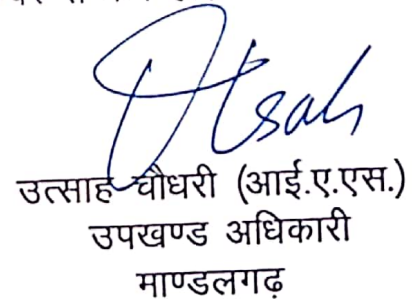 Utsah
उत्साह चौधरी (आई.ए.एस.)
उपखण्ड अधिकारी
माण्डलगढ़